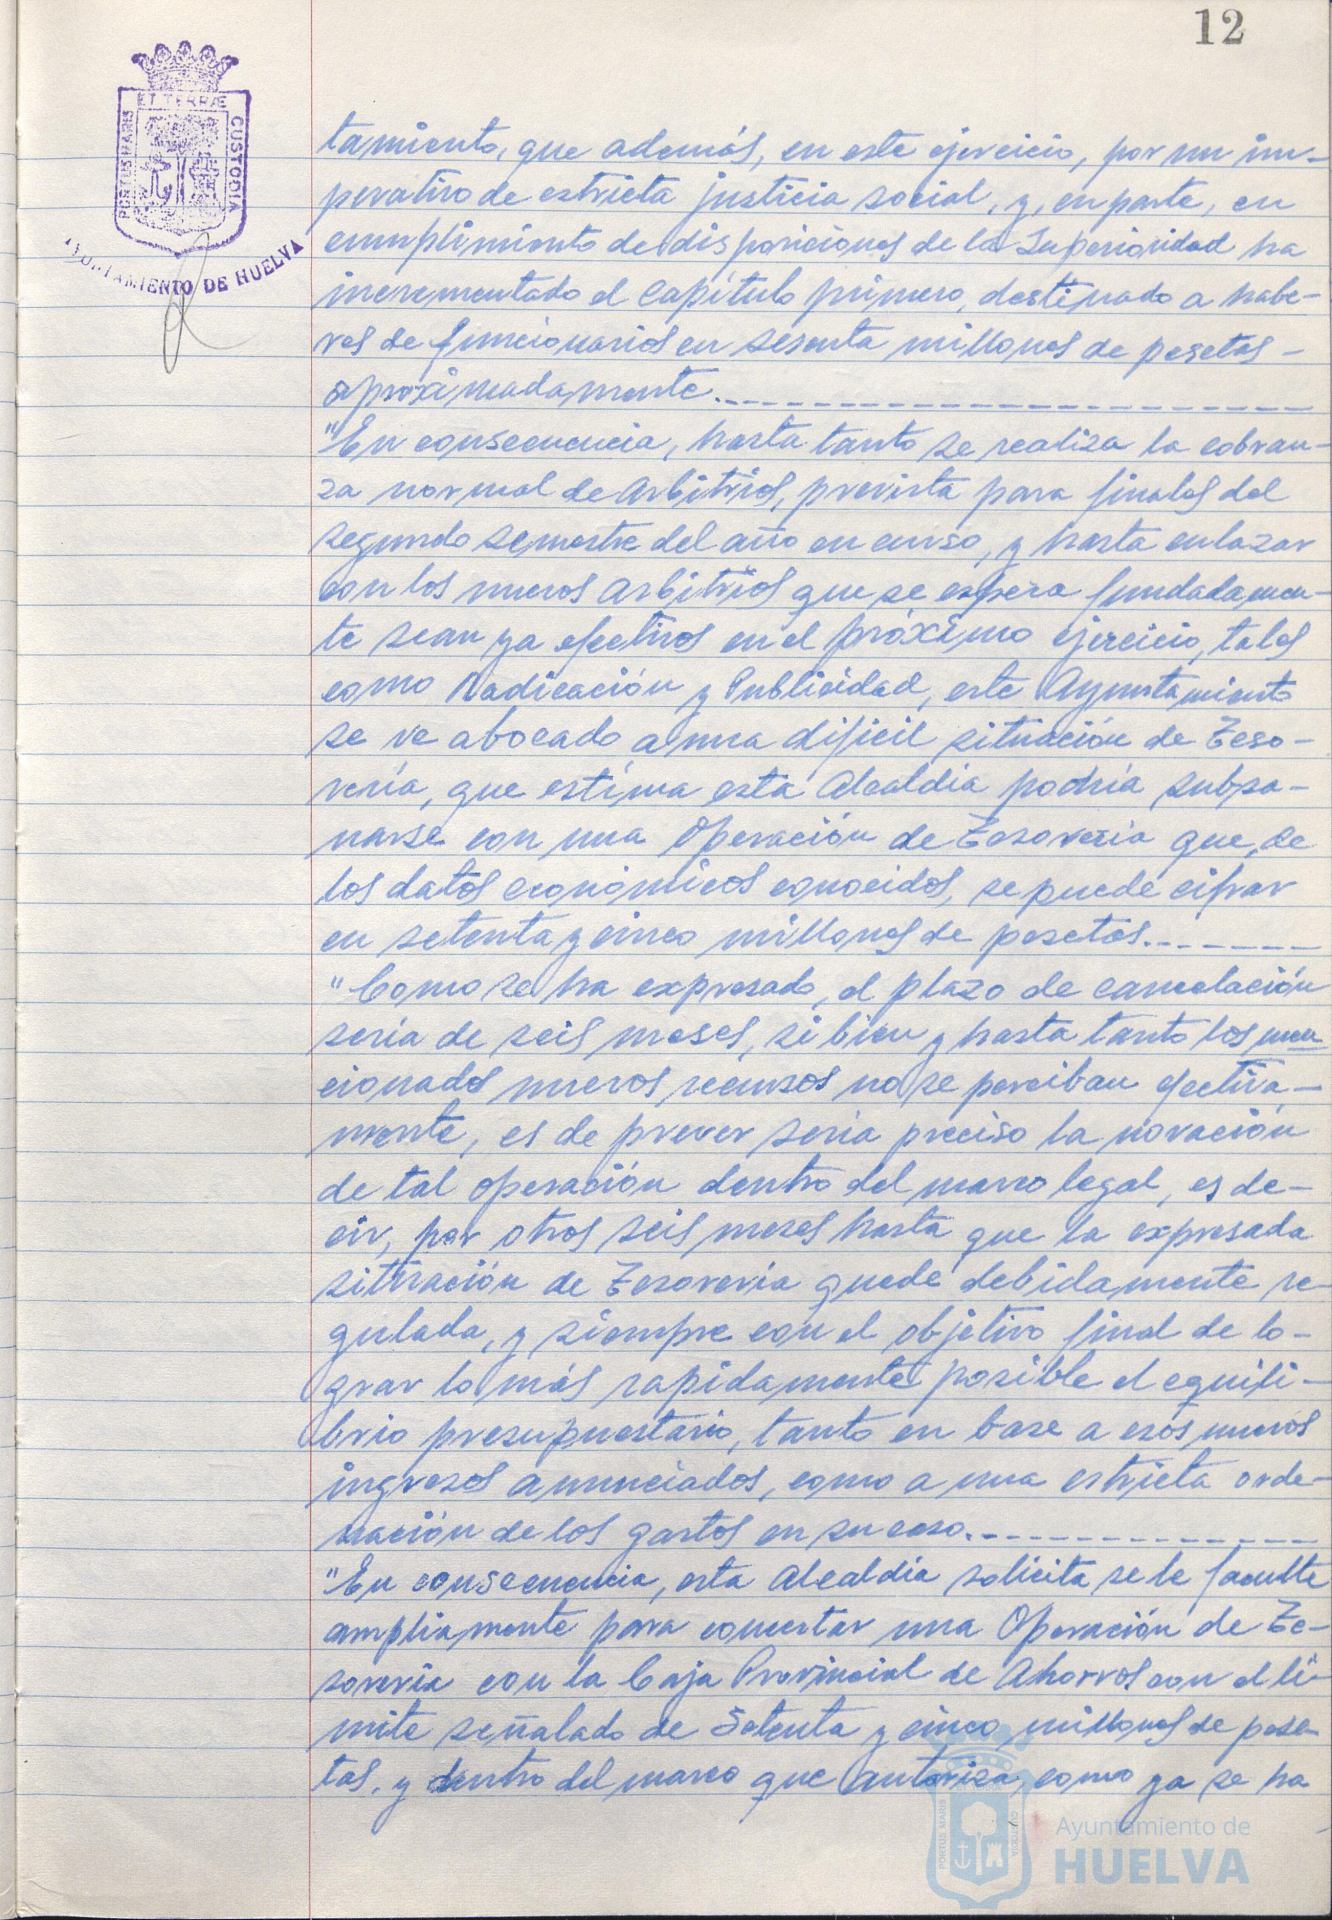 12
ET TERRÆ
PORTUS MARIS
CUSTODIA
AYUNTAMIENTO DE HUELVA
tamiento, que además, en este ejercicio, por un im-
perativo de estricta justicia social, y, en parte, en
cumplimiento de disposiciones de la Superioridad ha
incrementado el Capítulo primero, destinado a habe-
res de funcionarios en sesenta millones de pesetas -
aproximadamente.
"En consecuencia, hasta tanto se realiza la cobran-
za normal de Arbitrios, prevista para finales del
segundo semestre del año en curso, y hasta enlazar
con los nuevos Arbitrios que se espera fundadamen-
te sean ya efectivos en el próximo ejercicio, tales
como Radicación y Publicidad, este Ayuntamiento
se ve abocado a una difícil situación de Teso-
rería, que estima esta Alcaldía podría subsa-
narse con una Operación de Tesorería que, de
los datos económicos conocidos, se puede cifrar
en setenta y cinco millones de pesetas.
"Como se ha expresado, el plazo de cancelación
sería de seis meses, si bien y hasta tanto los men
cionados nuevos recursos no se perciban efectiva-
mente, es de prever sería preciso la novación
de tal operación dentro del marco legal, es de-
cir, por otros seis meses hasta que la expresada
situación de Tesorería quede debidamente re-
gulada, y siempre con el objetivo final de lo-
grar lo más rapidamente posible el equili-
brio presupuestario, tanto en base a esos nuevos
ingresos anunciados, como a una estricta orde-
nación de los gastos en su caso.
"En consecuencia, esta Alcaldía solicita se le faculte
ampliamente para concertar una Operación de Te-
sorería con la Caja Provincial de Ahorros con el lí-
mite señalado de Setenta y cinco millones de pese-
tas, y dentro del marco que autoriza, como ya se ha
PORTUS MARIS
CUSTODIA
Ayuntamiento de
HUELVA